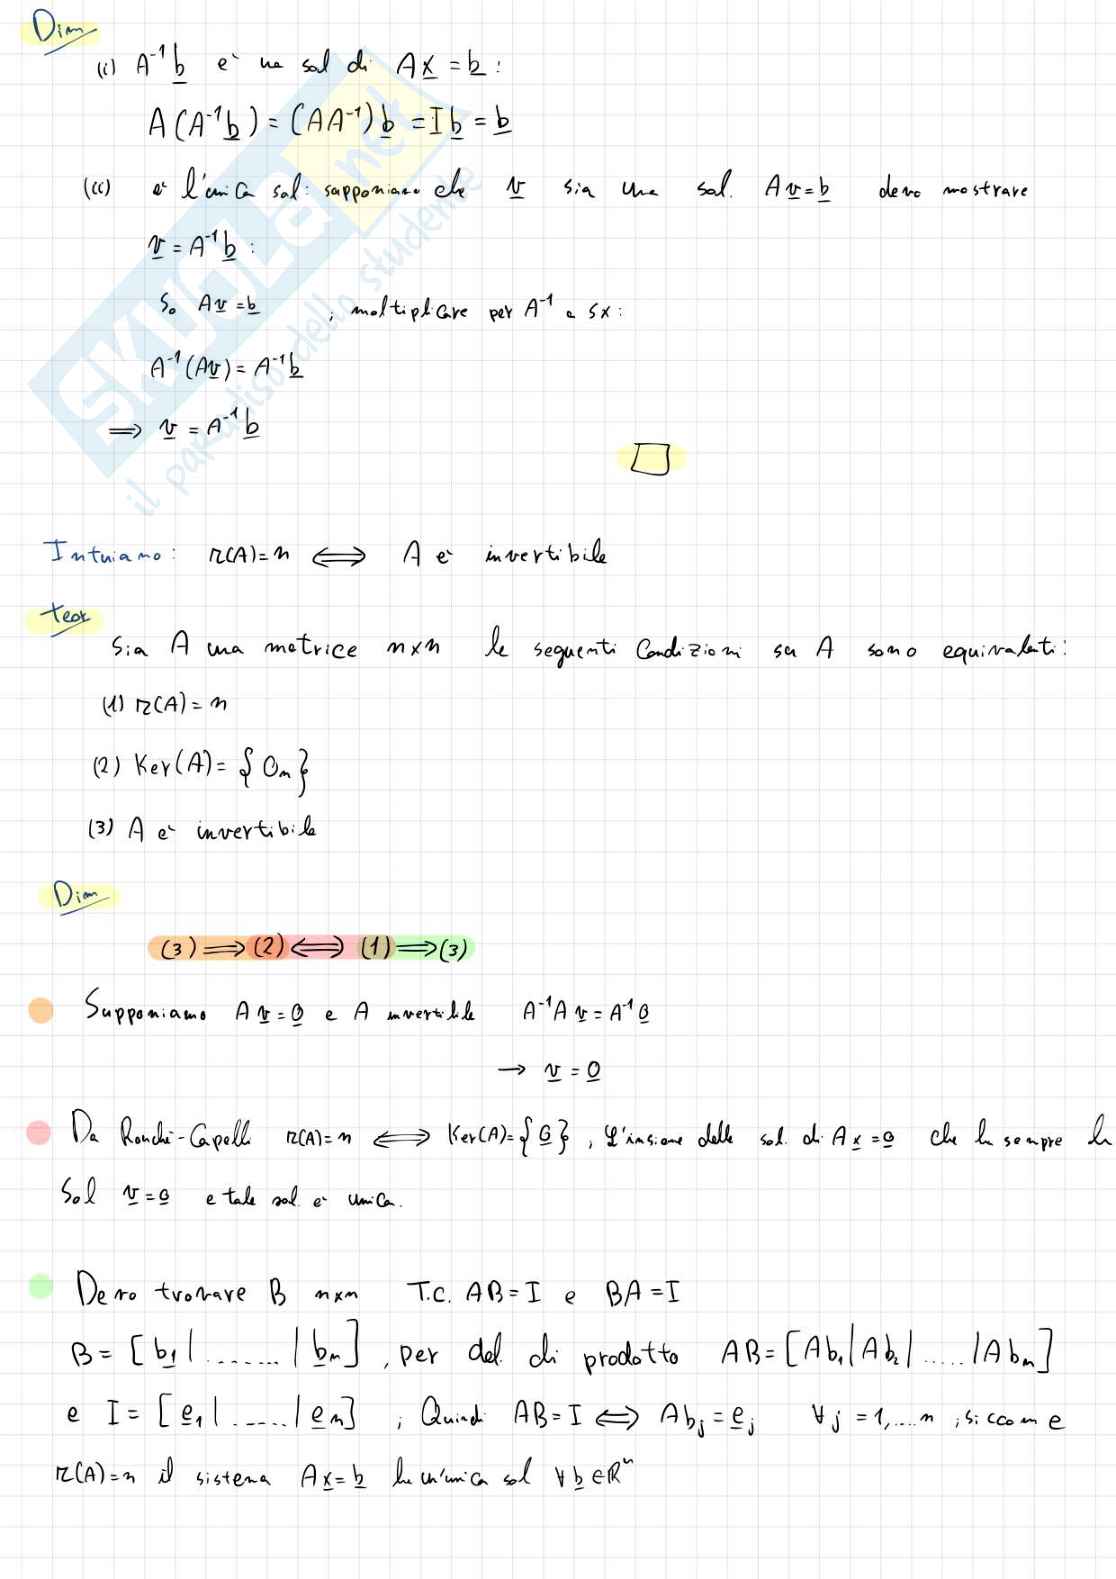 Dim
(i) A⁻¹b è una sol di Ax = b :
A(A⁻¹b) = (AA⁻¹)b = Ib = b
(ii) è l'unica sol: supponiamo che v sia una sol. Av=b devo mostrare
v = A⁻¹b :
So Av=b , moltiplicare per A⁻¹ a sx :
A⁻¹(Av) = A⁻¹b
⟹ v = A⁻¹b
□
Intuiamo: r(A)=n ⟺ A è invertibile
teor
Sia A una matrice n×n le seguenti condizioni su A sono equivalenti:
(1) r(A) = n
(2) Ker(A) = { 0n }
(3) A è invertibile
Dim
(3) ⟹ (2) ⟺ (1) ⟹ (3)
Supponiamo Av=0 e A invertibile A⁻¹Av = A⁻¹0
→ v = 0
Da Rouchè-Capelli r(A)=n ⟺ Ker(A)={0}, L'insieme delle sol. di Ax=0 che ha sempre la
Sol v=0 e tale sol. è unica.
Devo trovare B n×n T.C. AB=I e BA=I
B = [b1| ....... |bn] , per def. di prodotto AB=[Ab1|Ab2| ..... |Abn]
e I = [e1| ..... |en] , Quindi AB=I ⟺ Abj=ej ∀j=1,....n , siccome
r(A)=n il sistema Ax=b ha un'unica sol ∀b∈ℝⁿ
SKUOLA.net
il paradiso dello studente